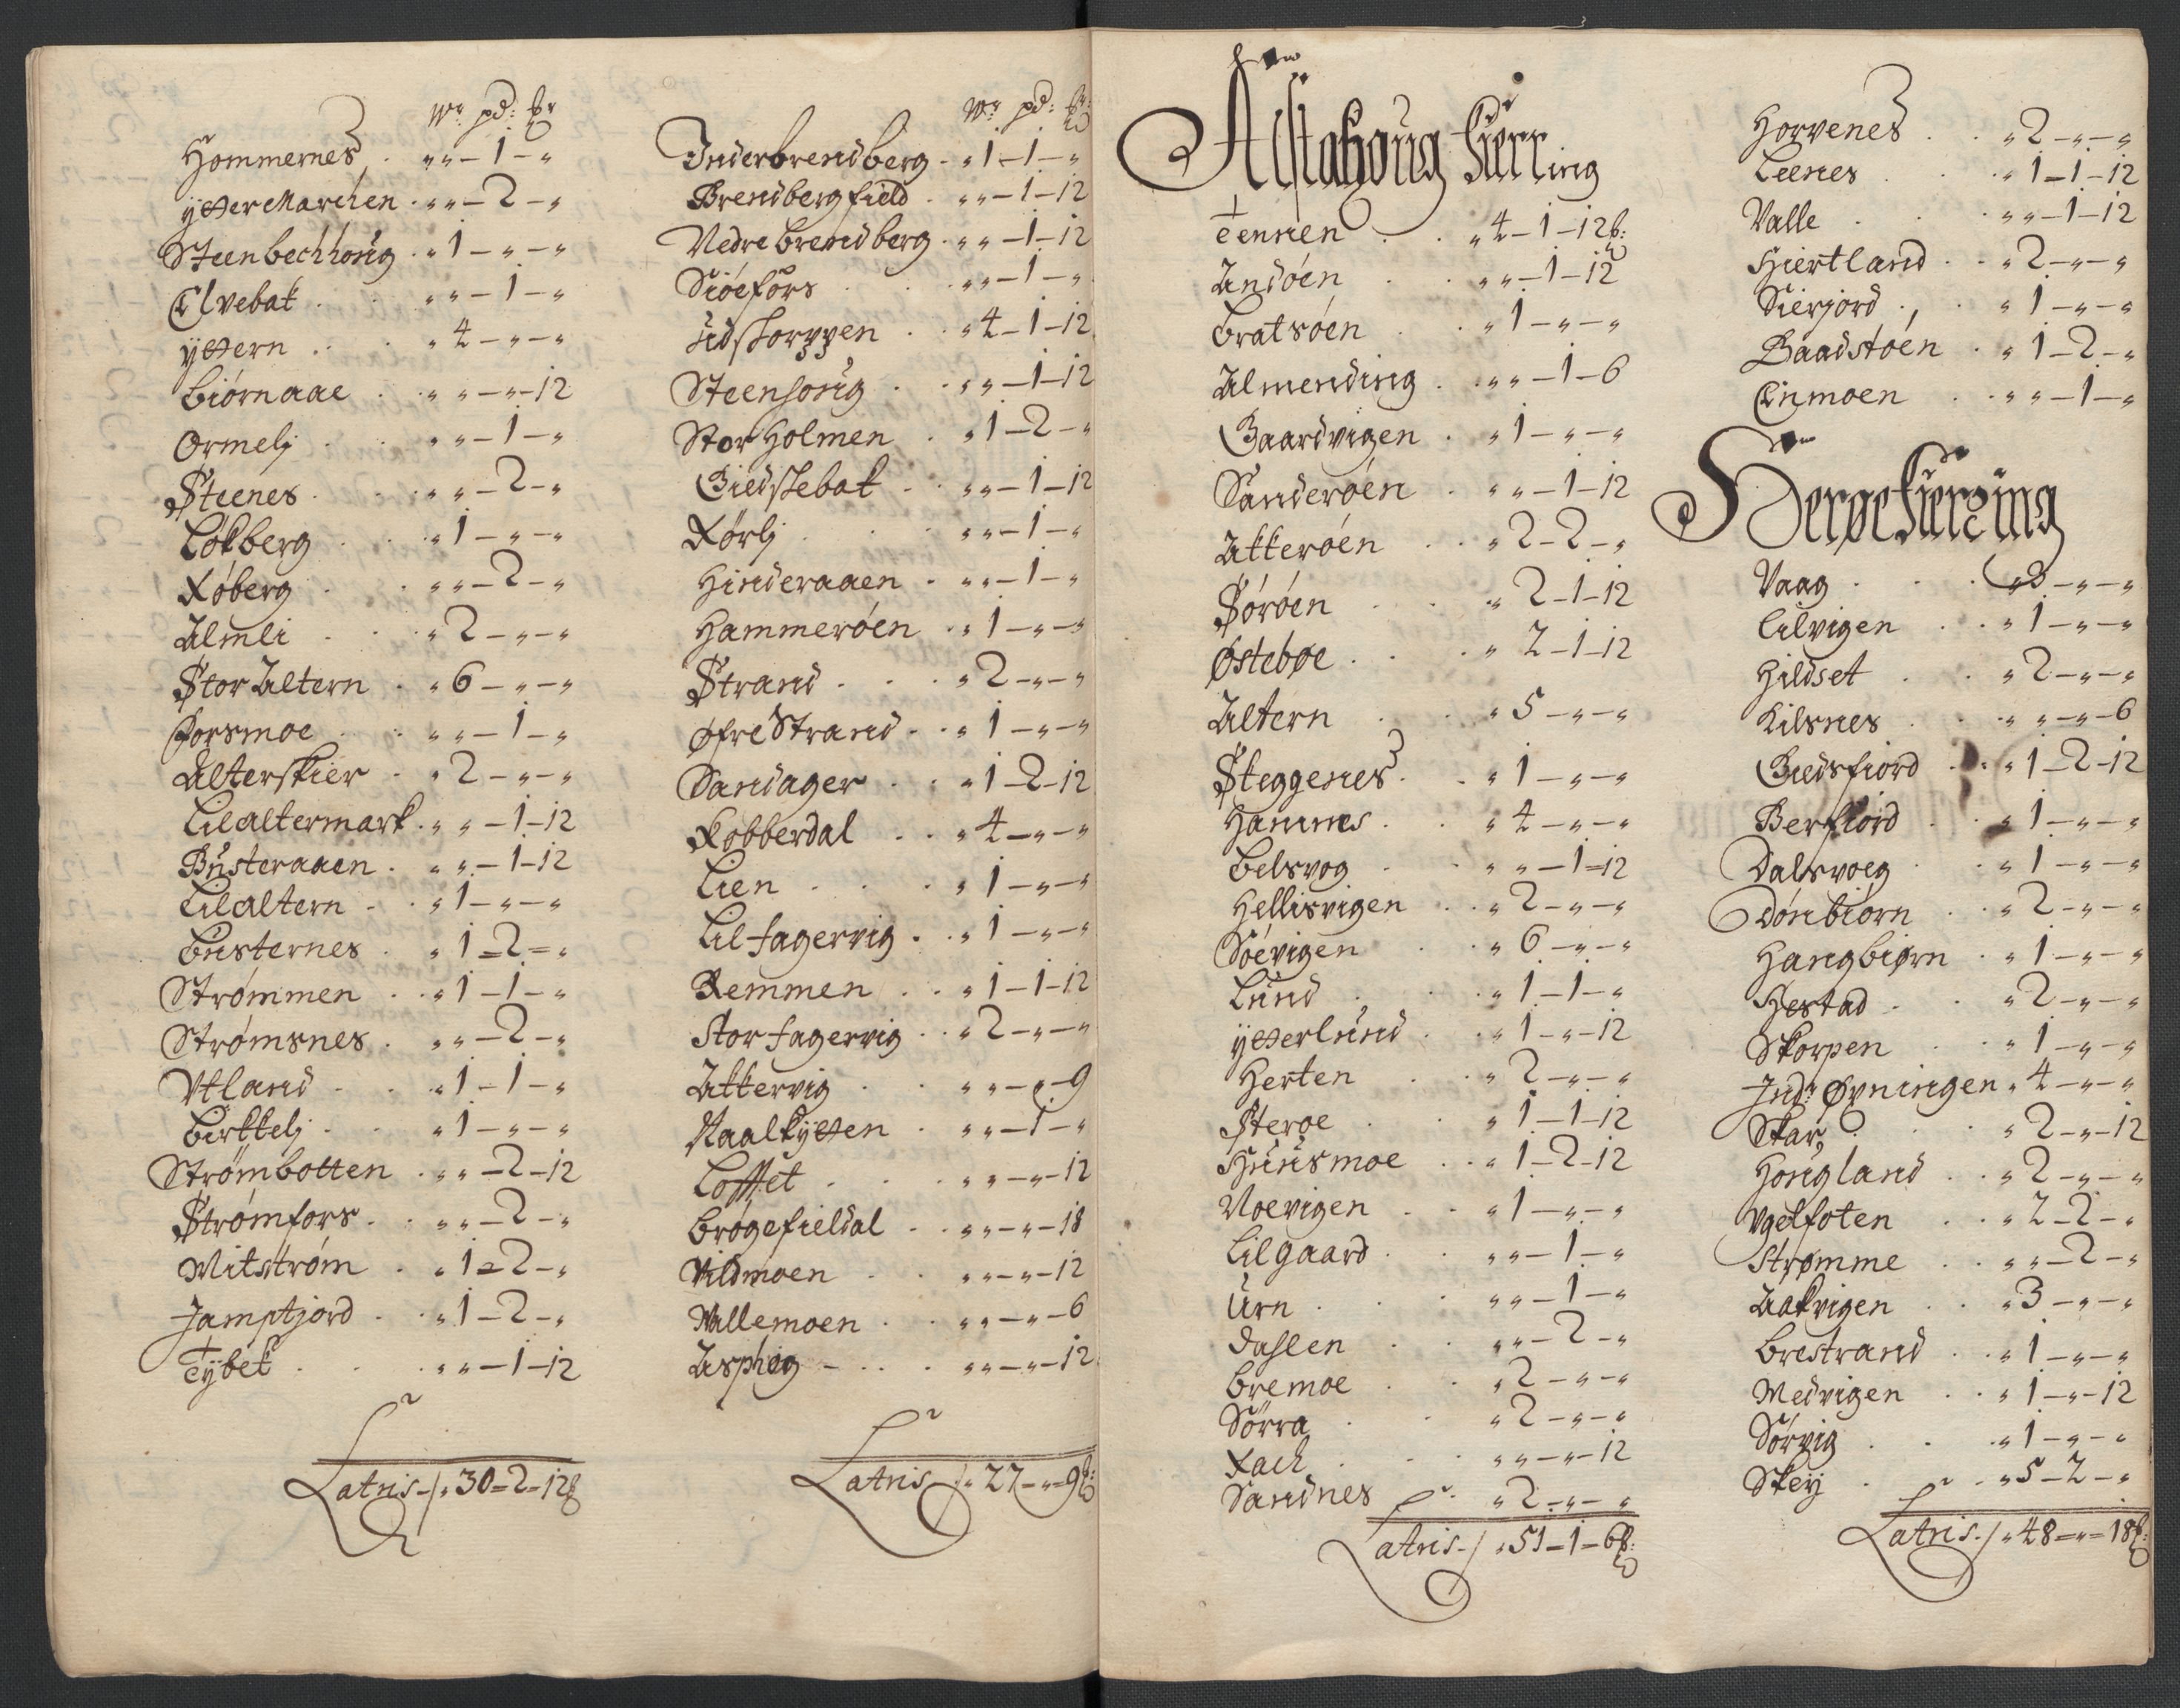 Wr pd: lb
Hommernes . „ „ – 1 – „
ytterMarchen . „ „ – 2 – „
Steenbechhoug . „ 1 – „ – „
Elvebak . „ „ – 1 – „
yttern . . „ 4 – „ – „
Biørnaae . „ „ – „ – 12
Ormelj . „ „ – 1 – „
Steenes . „ „ – 2 – „
Løkberg . „ 1 – „ – „
Røberg . „ „ – 2 – „
Almli . „ 2 – „ – „
Stor Altern . „ 6 – „ – „
Forsmoe . „ „ – 1 – „
Alterskier . „ 2 – „ – „
Lilaltermark . „ „ – 1 – 12
Busteraaen . „ „ – 1 – 12
Lilaltern . „ 1 – „ – „
Busternes . „ 1 = 2 = „
Strømmen . „ 1 – 1 – „
Strømsnes . „ „ – 2 – „
Vtland . „ 1 – 1 – „
Birkkelj . „ 1 – „ – „
Strømbotten . „ „ – 2 – 12
Strømfors . „ „ – 2 – „
Mitstrøm . „ 1 = 2 – „
Jamptjord . „ 1 – 2 – „
Tybek . „ „ – 1 – 12
Latris / „ 30 = 2 – 12 lb
Wr pd: lb:
Inderbrendberg . „ 1 – 1 – „
Brendbergfield . „ „ – 1 – 12
Nedre brendberg . „ „ – 1 – 12
Siøefors . „ „ – 1 – „
Udskorppen . „ 4 – 1 – 12
Steenhoug . „ „ – 1 – 12
Stor Holmen . „ 1 – 2 – „
Giedskebak . „ „ – 1 – 12
Rørlj . „ „ – 1 – „
Hinderaaen . „ „ – 1 – „
Hammerøen . „ 1 – „ – „
Strand . . „ 2 – „ – „
øfre Strand . „ 1 – „ – „
Sandager . „ 1 – 2 – 12
Kobberdal . „ 4 – „ – „
Lien . . „ 1 – „ – „
Lil fagervig . „ 1 – „ – „
Remmen . „ 1 – 1 – 12
Stor fagervig . „ 2 – „ – „
Attervig . „ „ – „ – 9
Naalkytten . „ „ – 1 – „
Loftet . . „ „ – „ – 12
Brøgefieldal . „ „ – „ – 18
Vildmoen . „ „ – „ – 12
Mallemoen . „ „ – „ – 6
Asphig – . . „ „ – „ – 12
Latris / „ 27 – „ = 9 lb:
Alstahoug fierring
Tennen . „ 4 – 1 – 12 lb:
Andøen . „ „ – 1 – 12
Bratsøen . „ 1 – „ – „
Almending . „ „ – 1 – 6
Gaardvigen . „ 1 – „ – „
Sanderøen . „ „ – 1 – 12
Atterøen . „ 2 – 2 – „
Sørøen . „ 2 – 1 – 12
Østebøe . . „ 2 – 1 – 12
Altern . „ 5 – „ – „
Steggenes . „ 1 – „ – „
Hannes . „ 4 – „ – „
Belsvog . „ „ – 1 = 12
Hellisvigen . „ 2 – „ – „
Søevigen . „ 6 – „ – „
Lund . „ 1 – 1 – „
ytterlund . „ 1 – „ – 12
Herten . „ 2 – „ – „
Sterøe . „ 1 – 1 – 12
Huusmoe . „ 1 – 2 – 12
Noevigen . „ 1 – „ – „
Lilgaard . „ „ – 1 – „
Urn . . „ „ – 1 – „
Dahlen . „ „ – 2 – „
Bremoe . „ 2 – „ – „
Sørra . „ 2 – „ – „
Rach . „ „ – „ – 12
Sandnes . „ 2 – „ – „
Latris / „ 51 – 1 – 6 lb:
Horvenes . „ 2 – „ – „
Leenes . „ 1 – 1 – 12
Valle . „ „ – 1 – 12
Hiertland . „ 2 – „ – „
Sierjord . „ 1 – „ – „
Baadstøen . „ 1 – 2 – „
Einmoen . „ „ – 1 – „
Herøe fierring
Vaag . . „ 3 – „ – „
Lilvigen . „ 1 – „ – „
Hildset . „ 2 – „ – „
Kilsnes . „ „ – „ – 6
Giedsfiord . „ 1 – 2 – 12
Berfiord . „ 1 – „ – „
Dalsvoeg . „ 1 – „ – „
Dønbiørn . „ 2 – „ – „
Hangbiørn . „ 1 – „ – „
Hestad . „ 2 – „ – „
Skorpen . „ 1 – „ – „
Indr Øvningen „ 4 – „ – „
Skar . „ 2 – „ – 12
Hougland . „ 2 – „ – „
Vgelfoten . „ 2 – 2 – „
Strømme . „ „ – 2 – „
Aakvigen . „ 3 – „ – „
Brestrand . „ 1 – „ – „
Medvigen . „ 1 – „ – 12
Sørvig . . „ 1 – „ – „
Skeij . „ 5 – 2 – „
Latris / „ 48 – „ = 18 lb: